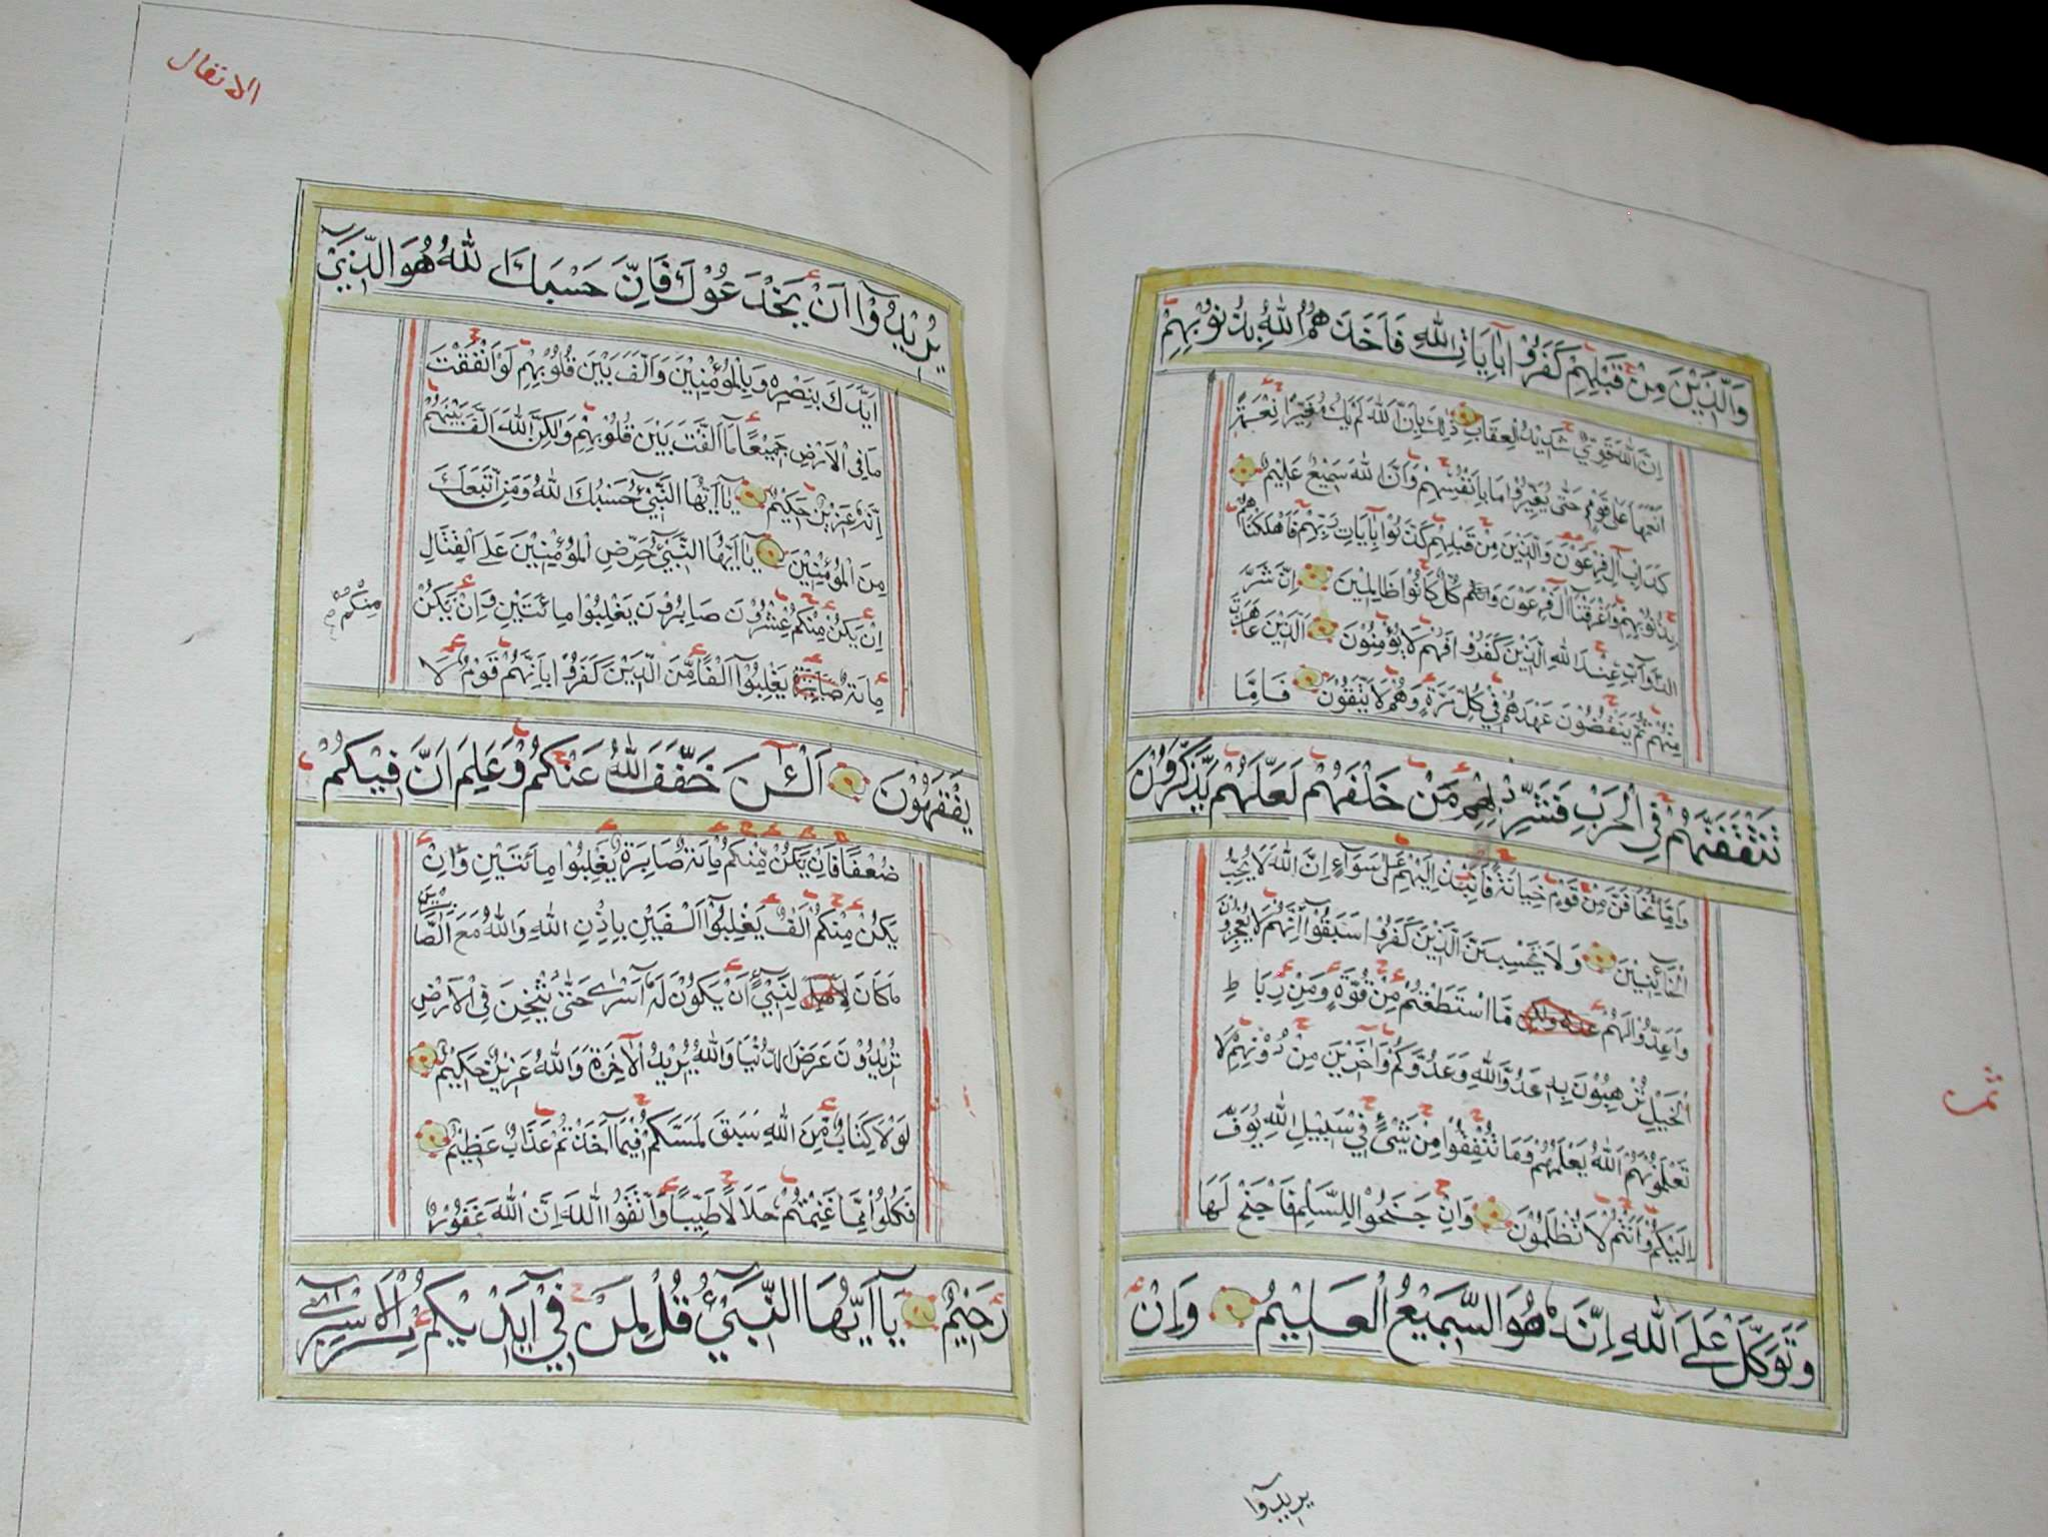 وَالَّذِيْنَ مِنْ قَبْلِهِمْ كَفَرُوْا بِاٰيَاتِ اللّٰهِ فَاَخَذَهُمُ اللّٰهُ بِذُنُوْبِهِمْ
اِنَّ اللّٰهَ قَوِيٌّ شَدِيْدُ الْعِقَابِ ذٰلِكَ بِاَنَّ اللّٰهَ لَمْ يَكُ مُغَيِّرًا نِعْمَةً
اَنْعَمَهَا عَلٰى قَوْمٍ حَتّٰى يُغَيِّرُوْا مَا بِاَنْفُسِهِمْ وَاَنَّ اللّٰهَ سَمِيْعٌ عَلِيْمٌ
كَدَاْبِ اٰلِ فِرْعَوْنَ وَالَّذِيْنَ مِنْ قَبْلِهِمْ كَذَّبُوْا بِاٰيَاتِ رَبِّهِمْ فَاَهْلَكْنَاهُمْ
بِذُنُوْبِهِمْ وَاَغْرَقْنَا اٰلَ فِرْعَوْنَ وَكُلٌّ كَانُوْا ظَالِمِيْنَ اِنَّ شَرَّ
الدَّوَآبِّ عِنْدَ اللّٰهِ الَّذِيْنَ كَفَرُوْا فَهُمْ لَا يُؤْمِنُوْنَ اَلَّذِيْنَ عَاهَدْتَ
مِنْهُمْ ثُمَّ يَنْقُضُوْنَ عَهْدَهُمْ فِيْ كُلِّ مَرَّةٍ وَهُمْ لَا يَتَّقُوْنَ فَاِمَّا
تَثْقَفَنَّهُمْ فِي الْحَرْبِ فَشَرِّدْ بِهِمْ مَنْ خَلْفَهُمْ لَعَلَّهُمْ يَذَّكَّرُوْنَ
وَاِمَّا تَخَافَنَّ مِنْ قَوْمٍ خِيَانَةً فَانْبِذْ اِلَيْهِمْ عَلٰى سَوَآءٍ اِنَّ اللّٰهَ لَا يُحِبُّ
الْخَآئِنِيْنَ وَلَا يَحْسَبَنَّ الَّذِيْنَ كَفَرُوْا سَبَقُوْا اِنَّهُمْ لَا يُعْجِزُوْنَ
وَاَعِدُّوْا لَهُمْ مَا اسْتَطَعْتُمْ مِنْ قُوَّةٍ وَمِنْ رِبَاطِ
الْخَيْلِ تُرْهِبُوْنَ بِهٖ عَدُوَّ اللّٰهِ وَعَدُوَّكُمْ وَاٰخَرِيْنَ مِنْ دُوْنِهِمْ لَا
تَعْلَمُوْنَهُمْ اَللّٰهُ يَعْلَمُهُمْ وَمَا تُنْفِقُوْا مِنْ شَيْئٍ فِيْ سَبِيْلِ اللّٰهِ يُوَفَّ
اِلَيْكُمْ وَاَنْتُمْ لَا تُظْلَمُوْنَ وَاِنْ جَنَحُوْا لِلسَّلْمِ فَاجْنَحْ لَهَا
وَتَوَكَّلْ عَلَى اللّٰهِ اِنَّهٗ هُوَ السَّمِيْعُ الْعَلِيْمُ وَاِنْ
ثمن
يريدوا
الانفال
يُرِيْدُوْا اَنْ يَخْدَعُوْكَ فَاِنَّ حَسْبَكَ اللّٰهُ هُوَ الَّذِيْ
اَيَّدَكَ بِنَصْرِهٖ وَبِالْمُؤْمِنِيْنَ وَاَلَّفَ بَيْنَ قُلُوْبِهِمْ لَوْ اَنْفَقْتَ
مَا فِي الْاَرْضِ جَمِيْعًا مَا اَلَّفْتَ بَيْنَ قُلُوْبِهِمْ وَلٰكِنَّ اللّٰهَ اَلَّفَ بَيْنَهُمْ
اِنَّهٗ عَزِيْزٌ حَكِيْمٌ يَا اَيُّهَا النَّبِيُّ حَسْبُكَ اللّٰهُ وَمَنِ اتَّبَعَكَ
مِنَ الْمُؤْمِنِيْنَ يَا اَيُّهَا النَّبِيُّ حَرِّضِ الْمُؤْمِنِيْنَ عَلَى الْقِتَالِ
اِنْ يَكُنْ مِنْكُمْ عِشْرُوْنَ صَابِرُوْنَ يَغْلِبُوْا مِائَتَيْنِ وَاِنْ يَكُنْ
مِنْكُمْ
مِائَةٌ يَغْلِبُوْا اَلْفًا مِّنَ الَّذِيْنَ كَفَرُوْا بِاَنَّهُمْ قَوْمٌ لَا
يَفْقَهُوْنَ اَلْئٰنَ خَفَّفَ اللّٰهُ عَنْكُمْ وَعَلِمَ اَنَّ فِيْكُمْ
ضَعْفًا فَاِنْ يَكُنْ مِّنْكُمْ مِائَةٌ صَابِرَةٌ يَغْلِبُوْا مِائَتَيْنِ وَاِنْ
يَكُنْ مِنْكُمْ اَلْفٌ يَغْلِبُوْا اَلْفَيْنِ بِاِذْنِ اللّٰهِ وَاللّٰهُ مَعَ الصَّابِرِيْنَ
مَا كَانَ لِنَبِيٍّ اَنْ يَكُوْنَ لَهٗ اَسْرٰى حَتّٰى يُثْخِنَ فِي الْاَرْضِ
تُرِيْدُوْنَ عَرَضَ الدُّنْيَا وَاللّٰهُ يُرِيْدُ الْاٰخِرَةَ وَاللّٰهُ عَزِيْزٌ حَكِيْمٌ
لَوْلَا كِتَابٌ مِّنَ اللّٰهِ سَبَقَ لَمَسَّكُمْ فِيْمَا اَخَذْتُمْ عَذَابٌ عَظِيْمٌ
فَكُلُوْا مِمَّا غَنِمْتُمْ حَلَالًا طَيِّبًا وَاتَّقُوا اللّٰهَ اِنَّ اللّٰهَ غَفُوْرٌ
رَحِيْمٌ يَا اَيُّهَا النَّبِيُّ قُلْ لِمَنْ فِيْ اَيْدِيْكُمْ مِنَ الْاَسْرٰى